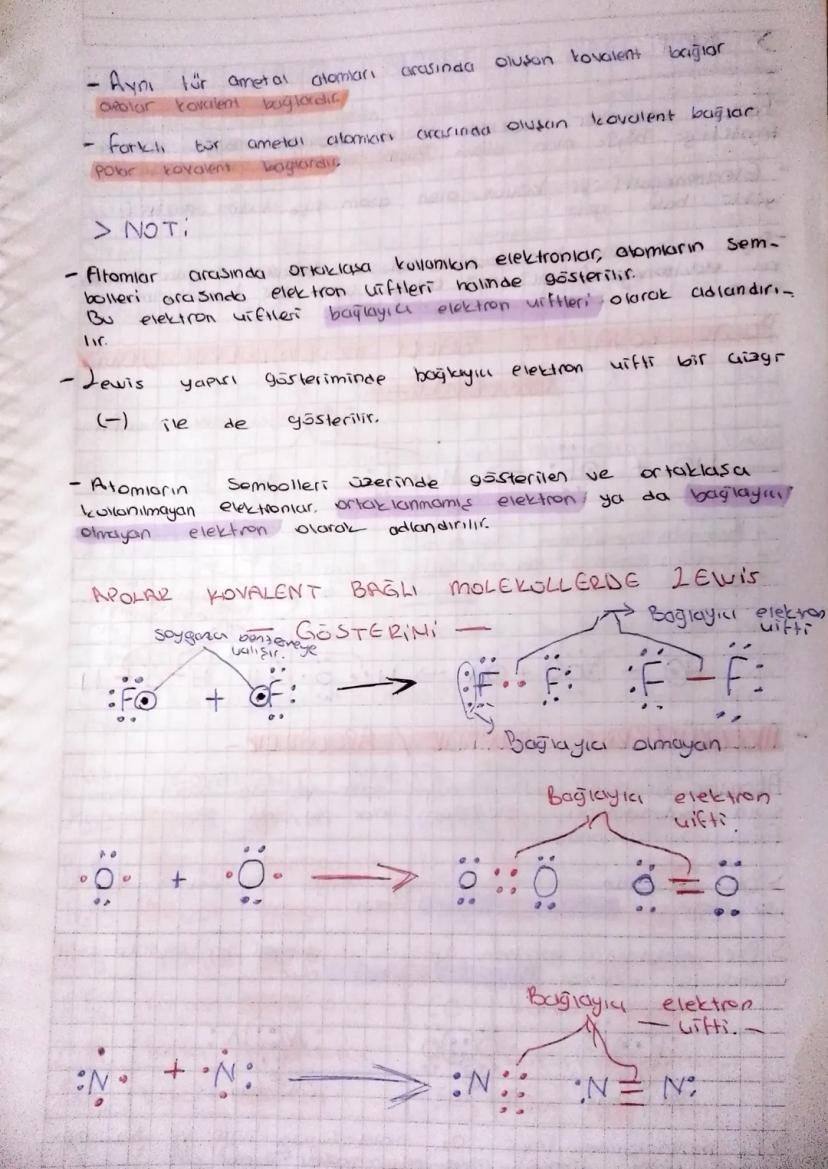 - Aynı tür ametal atomları arasında oluşan kovalent bağlar
apolar kovalent bağlardır.
- farklı tür ametal atomları arasında oluşan kovalent bağlar
polar kovalent bağlardır.
> NOT:
- Atomlar arasında ortaklaşa kullanılan elektronlar, atomların sem-
bolleri arasında elektron çiftleri halinde gösterilir.
Bu elektron çiftleri bağlayıcı elektron çiftleri olarak adlandırı-
lır.
- Lewis yapısı gösteriminde bağlayıcı elektron çifti bir çizgi
(-) ile de gösterilir.
- Atomların Sembolleri üzerinde gösterilen ve ortaklaşa
kullanılmayan elektronlar, ortaklanmamış elektron ya da bağlayıcı
olmayan elektron olarak adlandırılır.
APOLAR KOVALENT BAĞLI MOLEKÜLLERDE LEWİS
— GÖSTERİMİ —
soygaza benzemeye
çalışır.
→ Bağlayıcı elektron
çifti
:F + F: → F : F: :F — F:
Bağlayıcı olmayan
Bağlayıcı elektron
çifti.
·O· + ·O· → O :: O O = O
Bağlayıcı elektron
— çifti. —
:N· + ·N: → :N ⋮⋮ :N ≡ N: